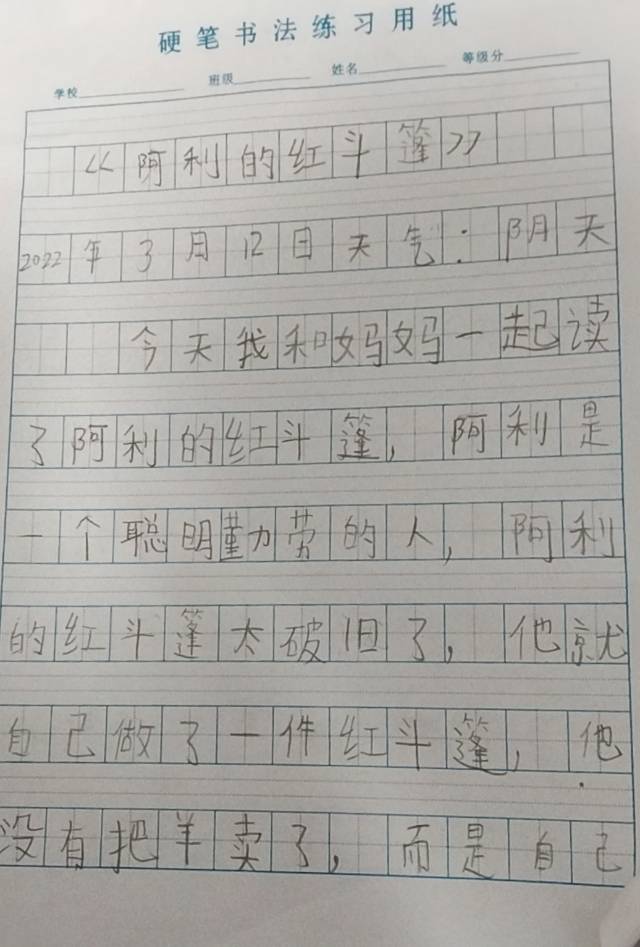 硬笔书法练习用纸
学校 班级 姓名 等级分
《阿利的红斗篷》
2022年3月12日天气：阴天
今天我和妈妈一起读
了阿利的红斗篷，阿利是
一个聪明勤劳的人，阿利
的红斗篷太破旧了，他就
自己做了一件红斗篷，他
没有把羊卖了，而是自己